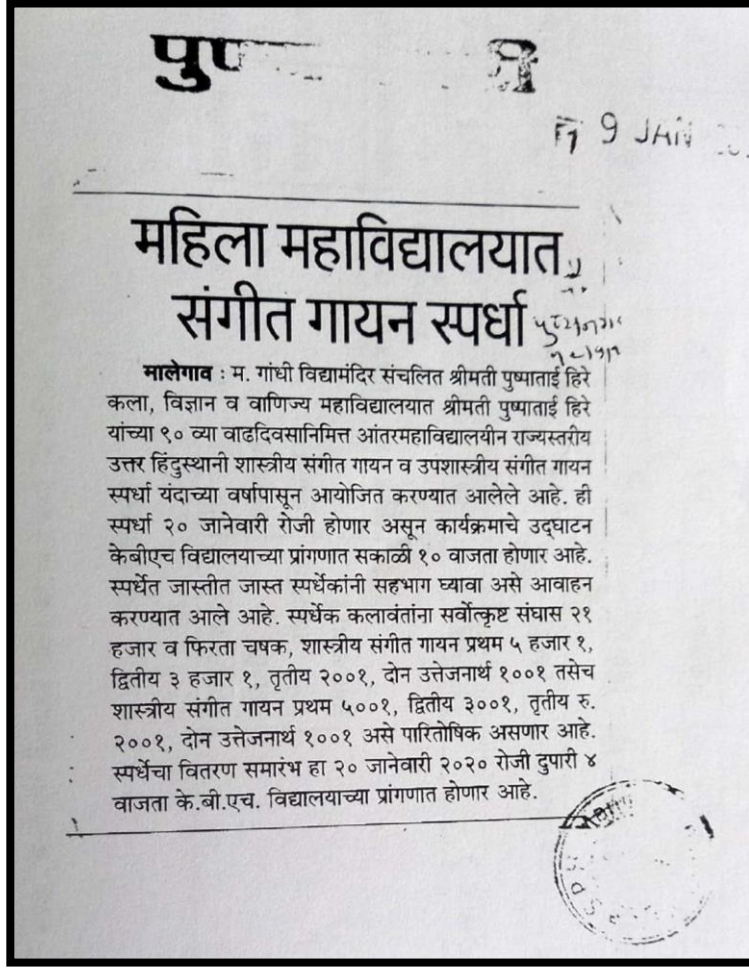 9 JAN
महिला महाविद्यालयात
संगीत गायन स्पर्धा
मालेगाव : म. गांधी विद्यामंदिर संचलित श्रीमती पुष्पाताई हिरे
कला, विज्ञान व वाणिज्य महाविद्यालयात श्रीमती पुष्पाताई हिरे
यांच्या ९० व्या वाढदिवसानिमित्त आंतरमहाविद्यालयीन राज्यस्तरीय
उत्तर हिंदुस्थानी शास्त्रीय संगीत गायन व उपशास्त्रीय संगीत गायन
स्पर्धा यंदाच्या वर्षापासून आयोजित करण्यात आलेले आहे. ही
स्पर्धा २० जानेवारी रोजी होणार असून कार्यक्रमाचे उद्घाटन
केबीएच विद्यालयाच्या प्रांगणात सकाळी १० वाजता होणार आहे.
स्पर्धेत जास्तीत जास्त स्पर्धेकांनी सहभाग घ्यावा असे आवाहन
करण्यात आले आहे. स्पर्धेक कलावंतांना सर्वोत्कृष्ट संघास २१
हजार व फिरता चषक, शास्त्रीय संगीत गायन प्रथम ५ हजार १,
द्वितीय ३ हजार १, तृतीय २००१, दोन उत्तेजनार्थ १००१ तसेच
शास्त्रीय संगीत गायन प्रथम ५००१, द्वितीय ३००१, तृतीय रु.
२००१, दोन उत्तेजनार्थ १००१ असे पारितोषिक असणार आहे.
स्पर्धेचा वितरण समारंभ हा २० जानेवारी २०२० रोजी दुपारी ४
वाजता के.बी.एच. विद्यालयाच्या प्रांगणात होणार आहे.